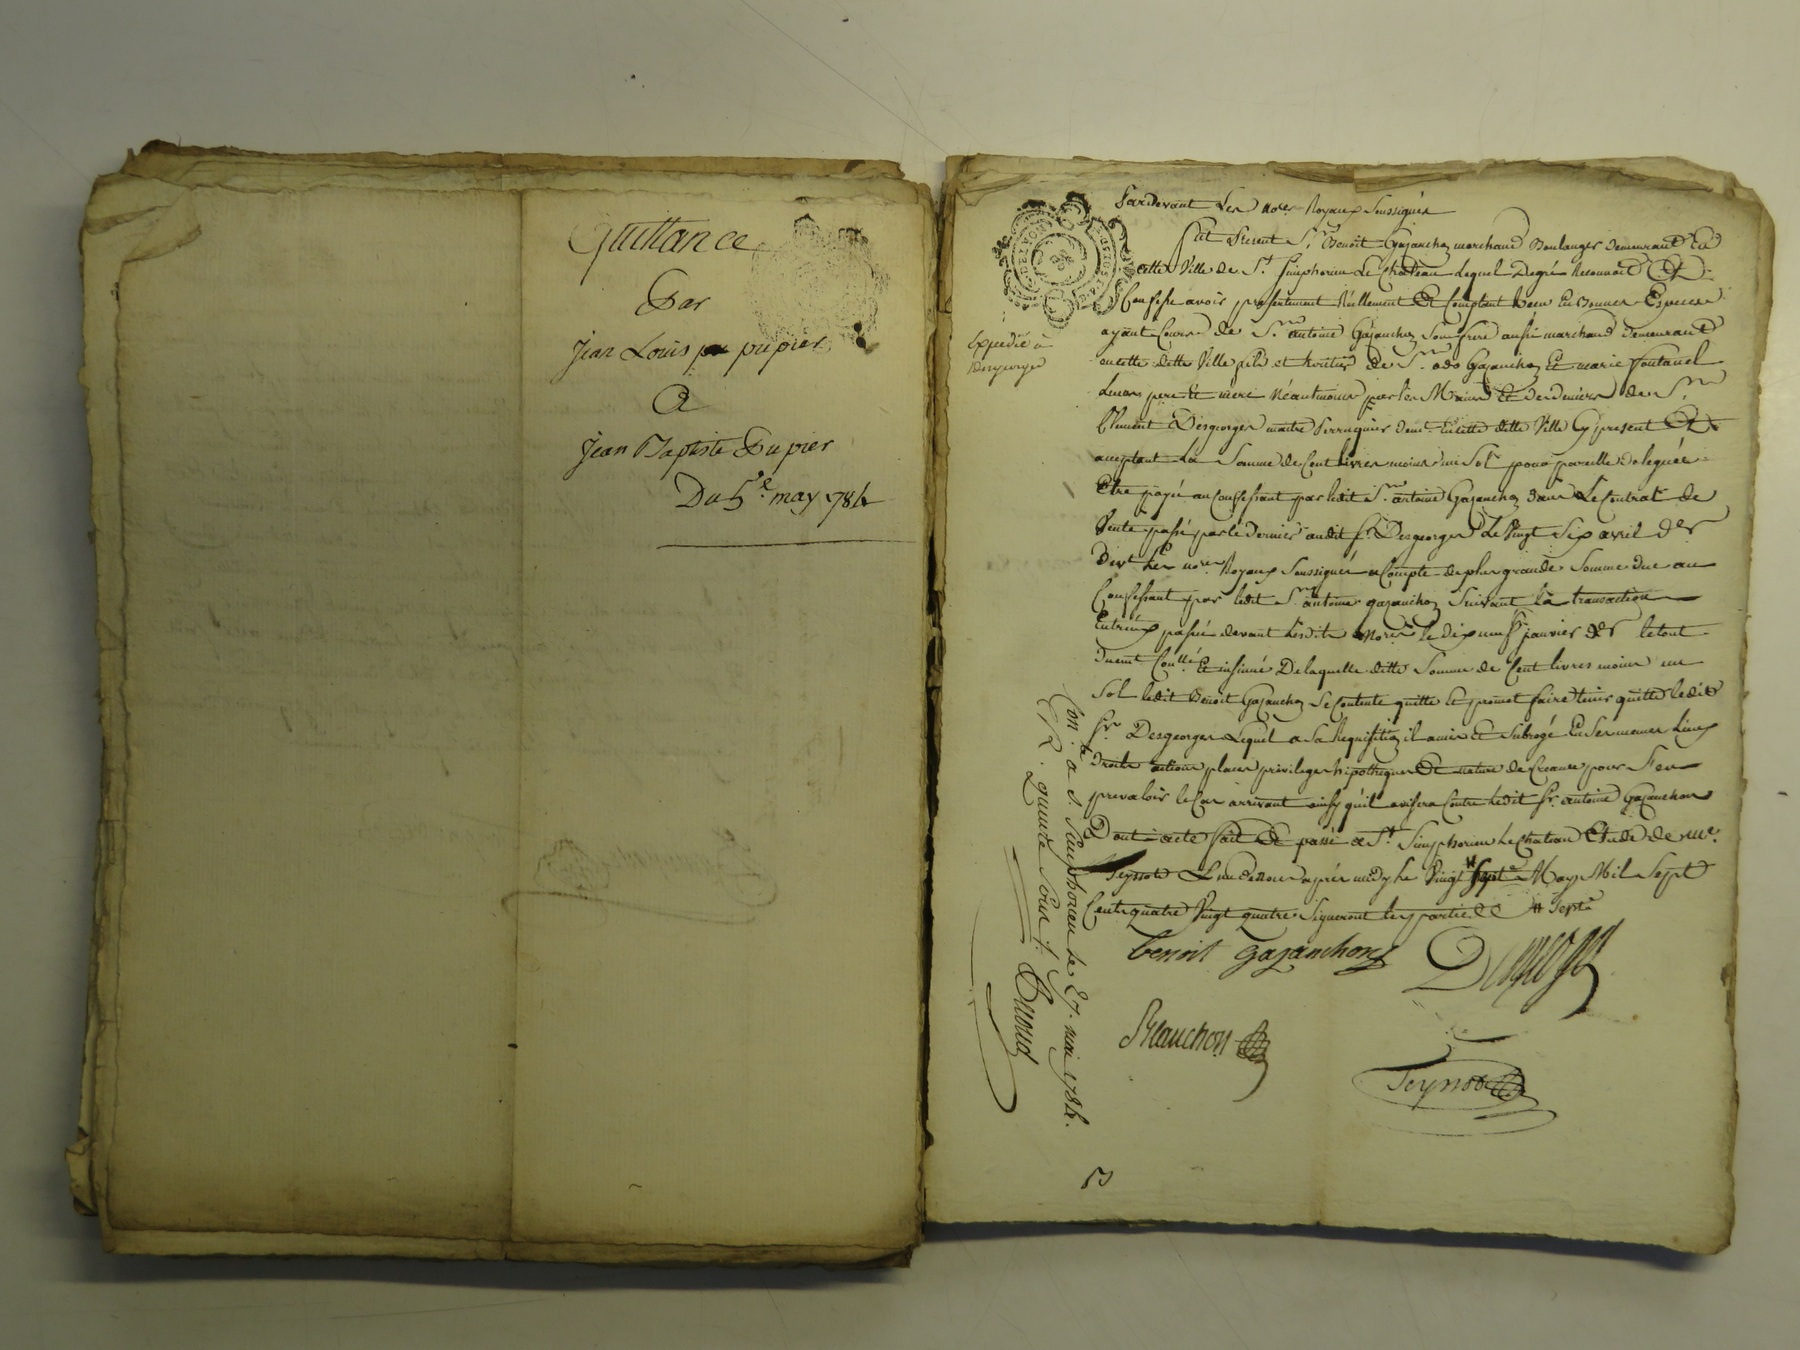 Quittance
Par
Jean Louis pupier
A
Jean Baptiste Pupier
Du 5e. may 1784
Pardevant Les nores Royaux Soussignés
fut Present Sr. Benoit Gajanchon marchand Boulanger demeurant En
cette Ville de St. Simphorien Le Chateau Lequel Degré Reconnoit Et
Confesse avoir presentement Réellement Et Comptant Receu En Bonnes Especes
ayant Cours de Sr. antoine Gajanchon Son frere aussi marchand demeurant
en cette ditte Ville fils et heritier de Sr. odo Gajanchon Et marie fontanel
Leurs pere Et mere Néantmoins par les Mains Et des deniers de Sr.
Clement Desgorges maitre Perruquier demt. En cette ditte Ville Cy present Et
acceptant La Somme de Cent livres moins un Sol pour pareille deleguée
Etre payée au Confessant par ledit Sr. antoine Gajanchon dans Le Contrat de
Vente passé par le dernier audit Sr. Desgorges Le Vingt Six avril der
devt Les nores Royaux Soussignés a Compte de plus grande Somme due au
Confessant par ledit Sr. antoine gajanchon Suivant la transaction
Entr'eux passée devant lesdits nores le dix neuf janvier der le tout
duemt Conllé Et insinué De laquelle ditte Somme de Cent livres moins un
Sol ledit Benoit Gajanchon Se Contente quitte Et promet faire tenir quitte ledit
Sr. Desgorges Lequel a Sa Requisition il a mis Et Subrogé En Ses memes Lieux
Droits actions places privileges hipotheques Et nature de Creance pour S'en
prevaloir le Cas arrivant ainsy qu'il avisera Contre ledit Sr. antoine Gajanchon
Dont acte fait Et passé a St. Simphorien Le Chateau Etude de Me.
Teyssot L'un de nous après midy le Vingt Sept May Mil Sept
Cents quatre Vingt quatre Signeront les parties # Sept
benoit gajanchon
Blanchon
Teyssot
Expedié a
Desgorges
Con. te a s. Simphorien le 27. mai 1784.
quinze sous